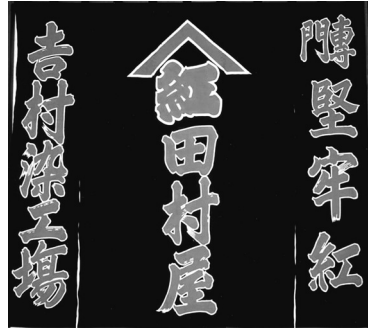 專門堅牢紅
紅田村屋
吉村染工場